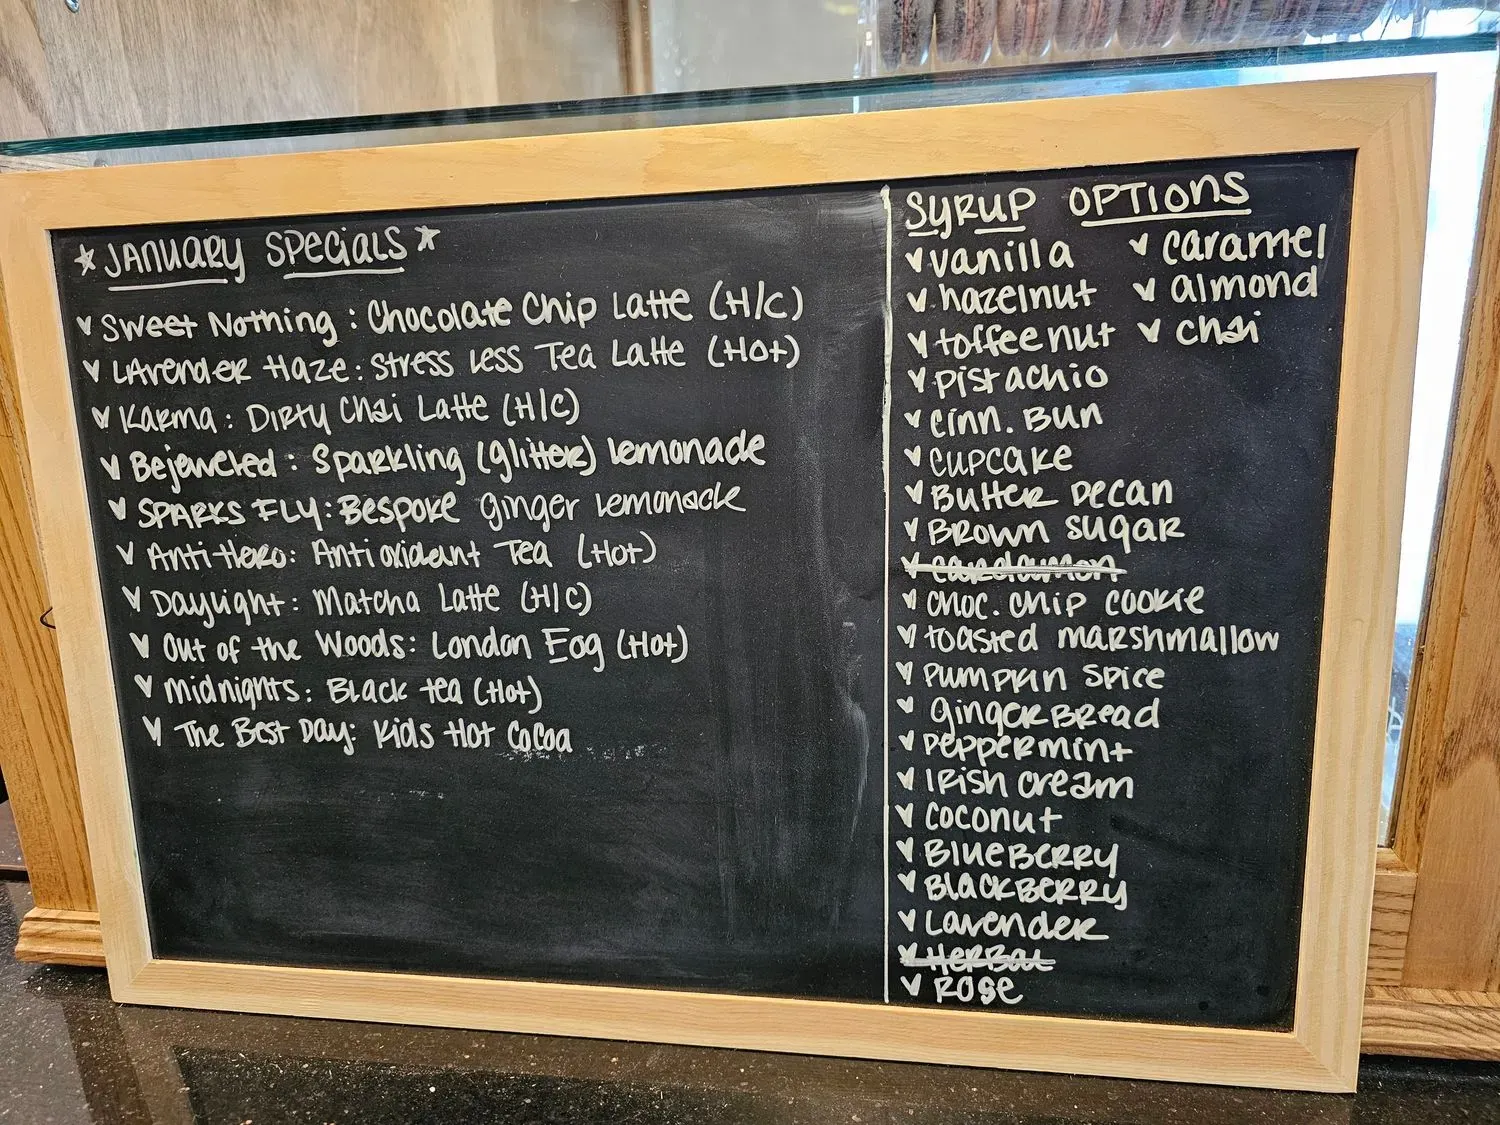 ★ JANUARY SPECIALS ★
Sweet Nothing : Chocolate Chip Latte (H/C)
Lavender Haze: Stress Less Tea Latte (Hot)
Karma: Dirty Chai Latte (H/C)
Bejeweled: Sparkling (glitter) lemonade
SPARKS FLY: Bespoke ginger lemonade
Anti-Hero: Anti oxident Tea (Hot)
Daylight: Matcha Latte (H/C)
Out of the Woods: London Fog (Hot)
Midnights: Black tea (Hot)
The Best Day: Kids Hot Cocoa
SYRUP OPTIONS
vanilla
hazelnut
toffeenut
pistachio
cinn. Bun
cupcake
Butter pecan
Brown sugar
cardamon
choc. chip cookie
toasted marshmallow
pumpkin spice
gingerbread
peppermint
Irish cream
coconut
Blueberry
Blackberry
Lavender
Herbal
Rose
caramel
almond
chai